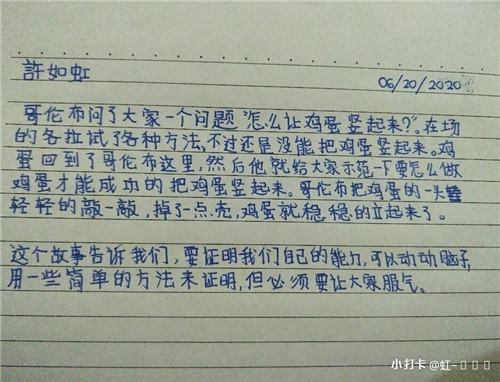 許如虹 06/20/2020
哥伦布问了大家一个问题“怎么让鸡蛋竖起来?”。在场
的各拉试了各种方法,不过还是没能把鸡蛋竖起来。鸡
蛋回到了哥伦布这里,然后他就给大家示范一下要怎么做
鸡蛋才能成功的把鸡蛋竖起来。哥伦布把鸡蛋的一头
轻轻的敲一敲,掉了一点壳,鸡蛋就稳稳的立起来了。
这个故事告诉我们,要证明我们自己的能力,可以动动脑子,
用一些简单的方法来证明,但必须要让大家服气。
小打卡 @虹-